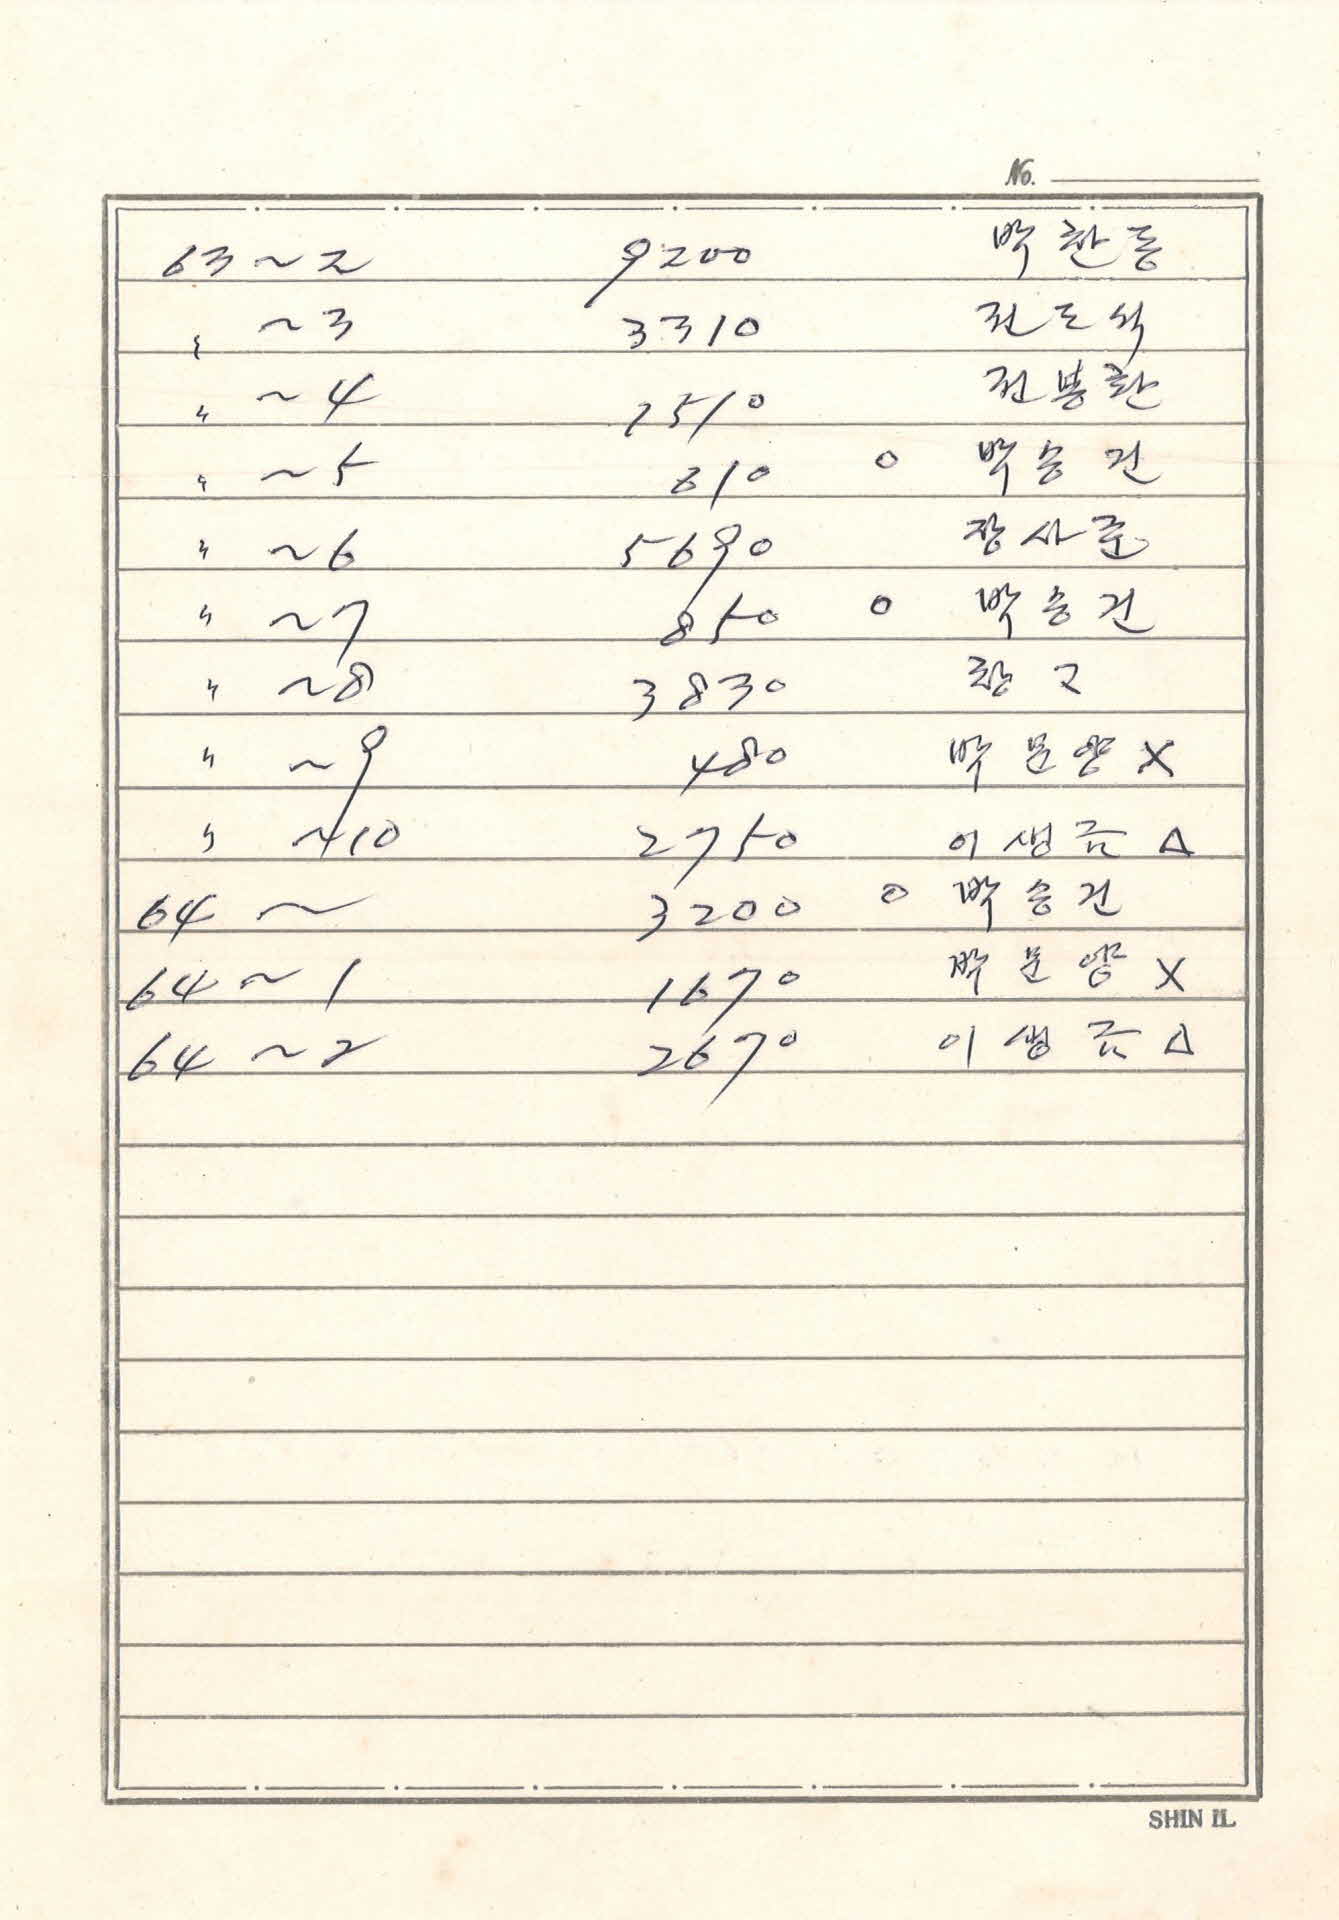 No.
63~2 9200 박환동
〃 ~3 3310 전도석
〃 ~4 1510 전봉환
〃 ~5 810 ○ 박승건
〃 ~6 5690 장사준
〃 ~7 850 ○ 박승건
〃 ~8 3830
〃 ~9 480 박문양 X
〃 ~10 2750 이생금 △
64 ~ 3200 ○ 박승건
64 ~ 1 1670 박문양 X
64 ~ 2 2670 이생금 △
SHIN IL